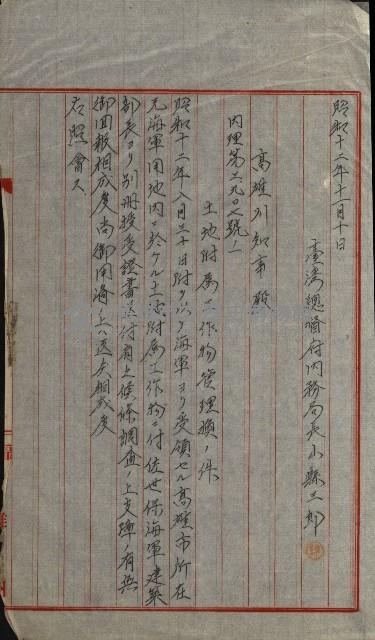 昭和十二年十一月十日
臺灣總督府內務局長山縣三郎
高雄州知事殿
內理第二九〇七號ノ一
土地附属工作物管理換ノ件
昭和十二年八月三十日附ヲ以テ海軍ヨリ受領セル髙雄市所在
元海軍用地內ニ於ケル土地附属工作物ニ付佐世保海軍建築
部長ヨリ別冊授受證書送付有之候條調査ノ上支障ノ有無
御回報相成度尚御用濟ノ上ハ返戻相成度
右照會ス